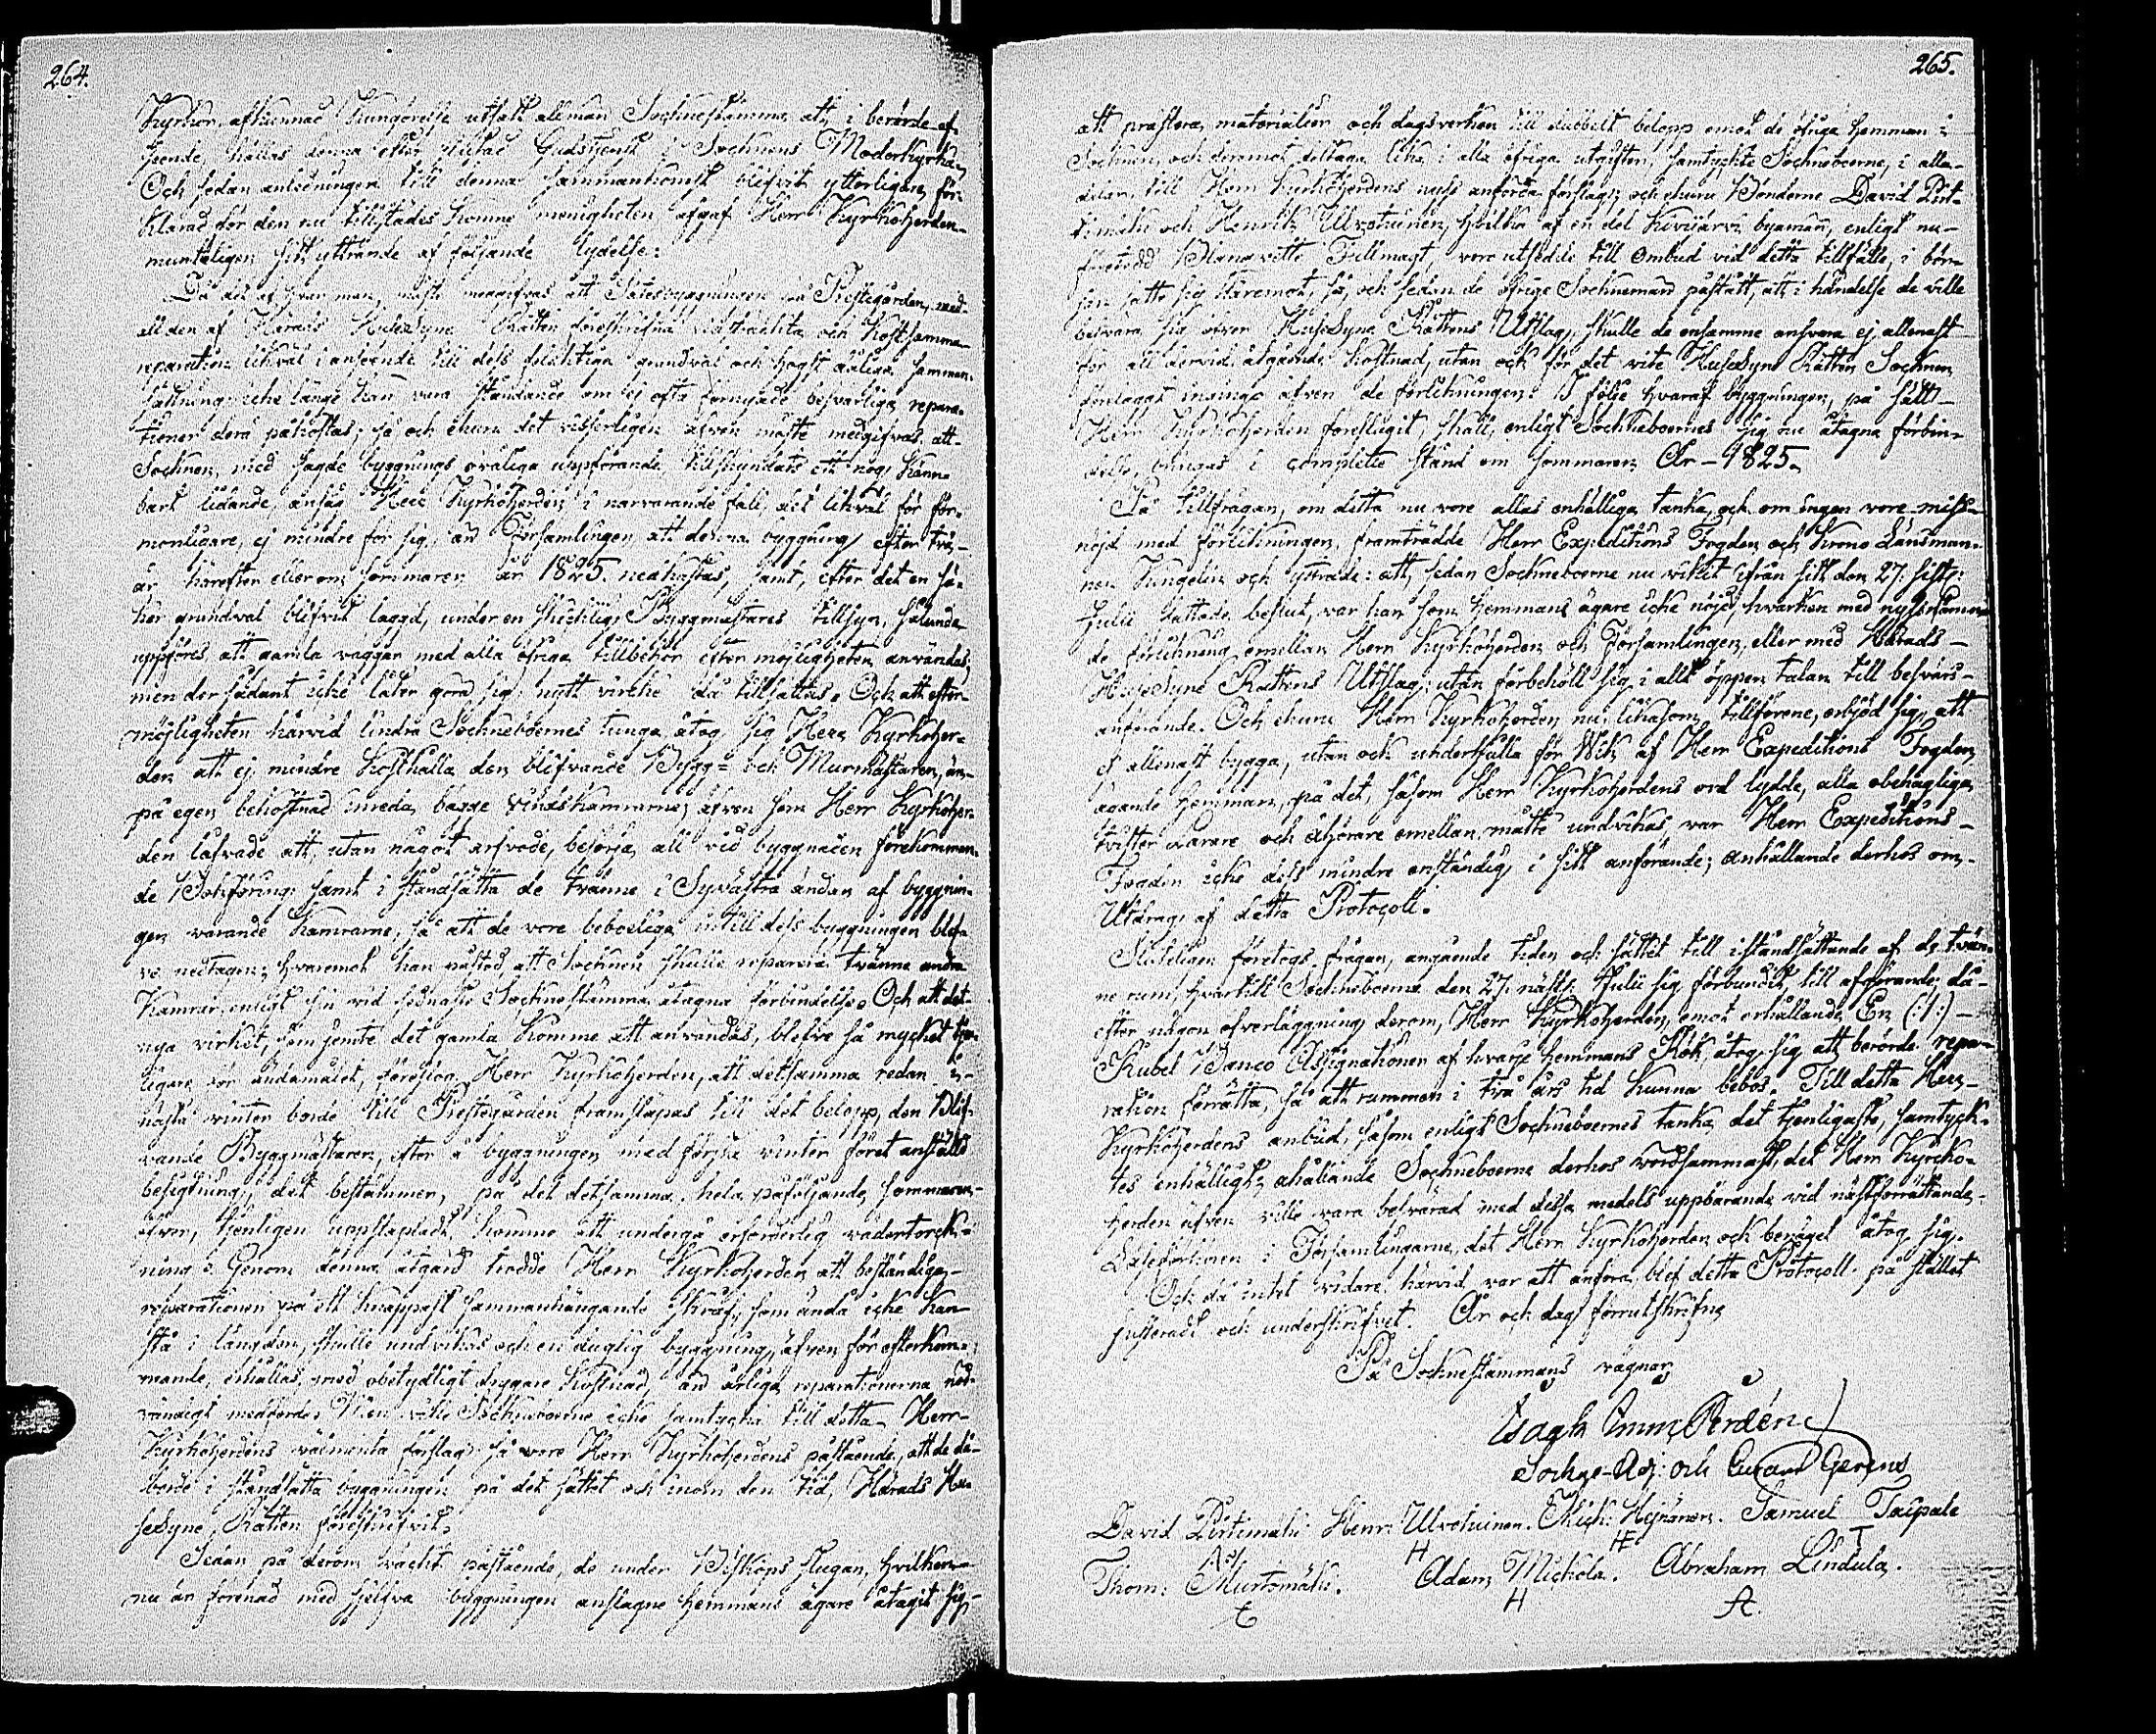 264.
Kyrkor afkunnad Kungörelse utsatt allmän Socknestämma, att i berörde af-
seende hållas denna efter slutad Gudstjenst i Socknens Moderkyrka,
Och sedan anledningen till denna sammankomst blifvit ytterligare för-
klarad för den nu tillstädes komne menigheten afgaf Herr Kyrkoherden
munteligen sitt yttrande af följande lydelse:
Då det af hvar man måste medgifvas att Sätesbyggningen på Prestegården, med
all den af Härads HuseSyns Rätten föreskrifna vidsträckta och kostsamma
reparation likväl i anseende till dess grundval och högst dåliga samman-
sättning icke länge kan vara ståndande om ej ofta förnyade besvärliga repara-
tioner derå påkostas; så och ehuru det visserligen äfven måste medgifvas att
Socknen, med sagde byggnings oväliga uppförande tillskyndats ett nog känn-
bart lidande, ansåg Herr Kyrkoherden i närvarande fall, det likväl för för-
monligare, ej mindre för sig, än Församlingen att denna byggning efter två
år härefter eller om sommaren år 1825. nedhastas, samt, efter det en sä-
ker grundval blifvit laggd, under en skicklig Byggmästares tillsyn, sålunda
uppföres att gamla väggar med alla öfriga tillbehör efter möjligheten användas,
men der sådant icke låter göra sig, nytt virke då tillsättas. Och att efter
möjligheten härvid lindra Sockneboernes tunga åtog sig Herr Kyrkoher-
den att ej mindre kosthålla den blifvande Bygg- och Murmästaren, än
på egen bekostnad inreda bägge vindskamrarne, äfven som Herr Kyrkoher-
den lofvade att, utan något arfvode, besörja all vid byggnaden förekomman-
de Bokföring; samt i ståndsätta de tvänne i Sydvästra ändan af byggnin-
gen varande Kamrarne, så att de vore beboeliga intill dess byggningen blef-
ve nedtagen; hvaremot han påstod, att Socknen skulle reparera tvänne andra
Kamrar, enligt sin vid sednaste Sockne stämma åtagna förbindelse. Och att det
nya virket, som jemte det gamla komme att användas, blefve så mycket tjen-
ligare för ändamålet, föreslog Herr Kyrkoherden, att detsamma redan i
nästa winter borde till Prestegården framsläpas till det belopp, den Blif-
vande Byggmästaren, efter å byggningen med första vinter föret anställd
besigtning, det bestämmer, på det detsamma, hela påföljande sommaren
öfver, tjenligen uppstapladt, komme att undergå erforderlig vädertork-
ning. Genom denna åtgärd trodde Herr Kyrkoherden att beständiga
reparationer på ett knappast sammanhängande skräf, som ändå icke kan
stå i längden, skulle undvikas och en duglig byggning, äfven för efterkom-
mande, erhållas, med obetydligt drygare kostnad, än årliga reparationerna nöd-
vändigt medförde. Men ville Sockneboerne icke samtycka till detta Herr
Kyrkoherdens välmenta förslag så vore Herr Kyrkoherdens påstående, att de då
borde i ståndsätta byggningen på det sättet och inom den tid, Härads Hu-
seSyns Rätten föreskrifvit.
Sedan på derom väckt påstående, de under Biskops stugan, hvilken
nu är förenad med sjelfva byggningen anslagne hemmans ägare åtagit sig
265.
att præstera materialier och dagsverken till dubbelt belopp emot de öfriga hemman i
Socknen, och deremot deltaga lika i alla öfriga utgifter, samtyckte Sockneboerne, i alla
delar, till Herr Kyrkoherdens nyss anförda förslag; och ehuru Bönderne David Pirt-
timäki och Henrik Ulvotuinen, hvilka af en del Kivijärvi byamän, enligt nu
företedd Blanquette Fullmagt, vore utsedde till Ombud vid detta tillfälle, i bör-
jan satte sig däremot, så, och sedan de öfrige Socknemän påstått, att i händelse de ville
besvära sig öfver HuseSyns Rättens Utslag, skulle de ensamme ansvara ej allenast
för all dervid åtgående kostnad, utan ock för det vite HuseSyns Rätten Socknen
förelagt ingingo äfven de förlikningen. I följe hvaraf byggningen, på sätt
Herr Kyrkoherden föreslagit skall, enligt Sockneboernes sig nu åtagna förbin-
delse, bringas i complette stånd om sommaren År 1825.
På tillfrågan, om detta nu vore allas enhälliga tanka, och om ingen vore miss-
nöjd med förlikningen, framträdde Herr Expeditions Fogden och Krono Länsman-
nen Jungelin och yttrade: att, sedan Sockneboerne nu vikit ifrån sitt den 27. sistl.
Julii fattade beslut, var han som hemmans ägare icke nöjd, hvarken med nyssnämn-
de förlikning emellan Herr Kyrkoherden och Församlingen, eller med Härads
HuseSyns Rättens Utslag; utan förbehöll sig i allt öppen talan till besvärs
anförande. Och ehuru Herr Kyrkoherden nu, likasom tillförene, erbjöd sig, att
ej allenast bygga, utan och underhålla för Wik af Herr Expeditions Fogden
ägande hemman, på det, såsom Herr Kyrkoherdens ord lydde, alla obehagliga
tvister lärare och åhörare emellan måtte undvikas, var Herr Expeditions
Fogden icke dess mindre enständig i sitt anförande; anhållande derhos om
Utdrag af detta Protocoll.
Slutligen företogs frågan, angående tiden och sättet till iståndsättande af de tvän-
ne rum, hvartill Sockneboerne den 27. nästl. Julii sig förbundit, till afgörande; då
efter någon öfverläggning derom, Herr Kyrkoherden, emot erhållande En (:1:)
Rubel Banco Assignationer af hvarje hemmans Rök, åtog sig att berörde repa-
ration förrätta, så att rummen i två års tid kunna bebos. Till detta Herr
Kyrkoherdens anbud, såsom enligt Sockneboernes tanka det tjenligaste, samtyck-
tes enhälligt, anhållande Sockneboerne derhos vördsammast, det Herr Kyrko-
herden äfven ville vara besvärad med dessa medels uppbärande vid nästförrättande
Läseförhören i Församlingarne, det Herr Kyrkoherden ock benäget åtog sig.
Och då intet vidare härvid var att anföra, blef detta Protocoll på stället
justeradt och underskrifvet. År och dag förrutskrifne
På Sockne stämmans vägnar
Isach Emm. Perdén
Sockne-Adj: och Curam Gerens
David Pirtimäki. Henr: Ulvotuinen. Mich: Hejnänen. Samuel Taipale
H HE T
Thom: Murtomäki. Adam Mickola. Abraham Lindula.
H A.